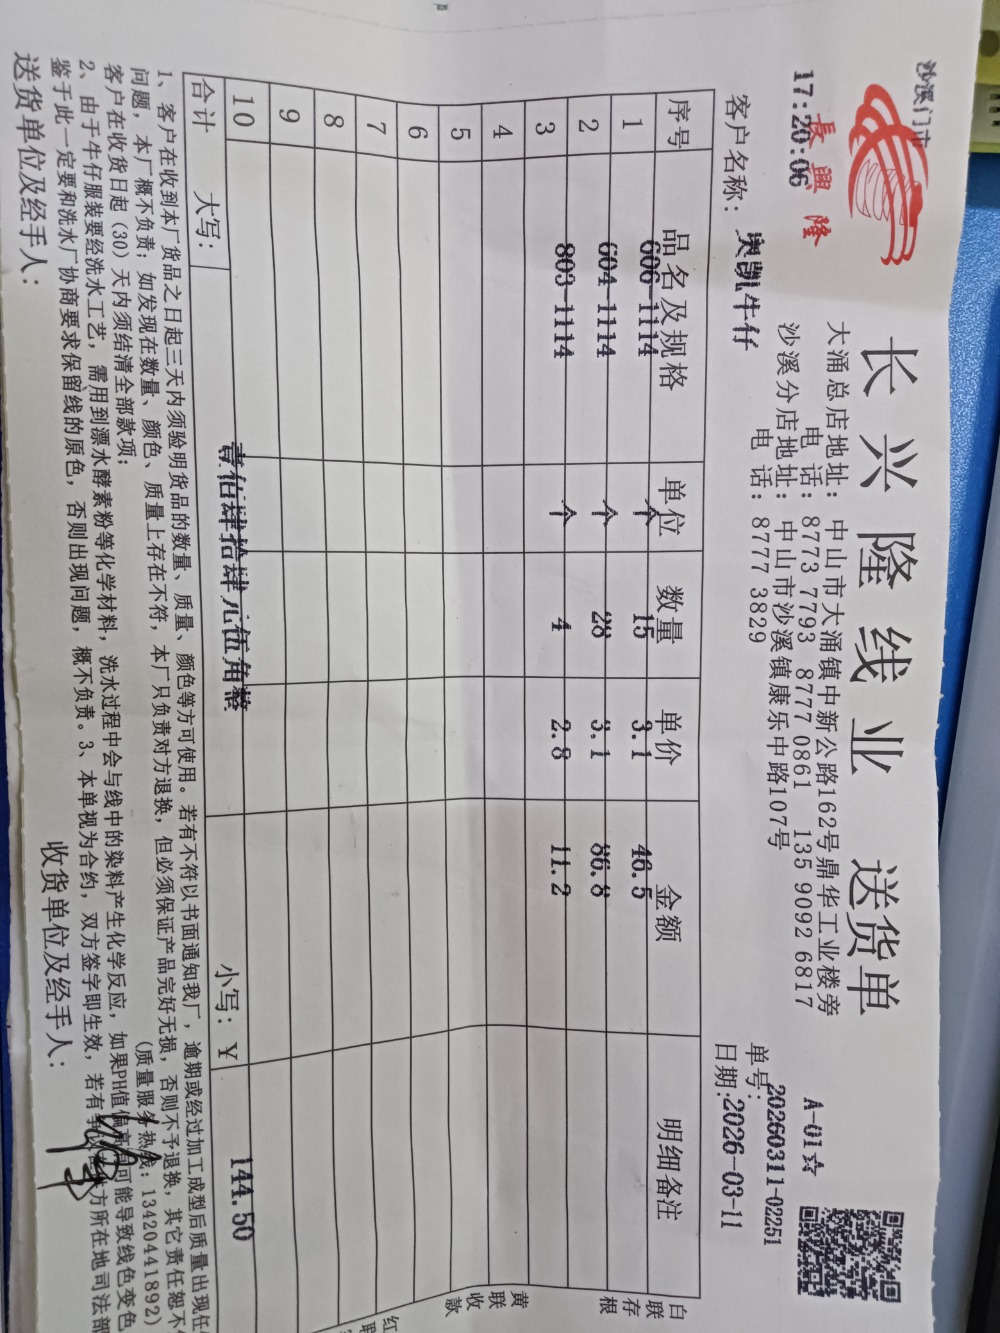 沙溪门市
17:20:06
長興隆
长兴隆线业 送货单
大涌总店地址：中山市大涌镇中新公路162号鼎华工业楼旁
电话：8773 7793 8777 0861 135 9092 6817
沙溪分店地址：中山市沙溪镇康乐中路107号
电话：8777 3829
A-01☆
单号：20260311-02251
客户名称：奥凯牛仔
日期：2026-03-11
序号 品名及规格 单位 数量 单价 金额 明细备注
1 606-1114 个 15 3.1 46.5
2 604-1114 个 28 3.1 86.8
3 803-1114 个 4 2.8 11.2
4
5
6
7
8
9
10
合计 大写：壹佰肆拾肆元伍角整 小写：￥ 144.50
白联存根
黄联收款
红
1、客户在收到本厂货品之日起三天内须验明货品的数量、质量、颜色等方可使用。若有不符以书面通知我厂，逾期或经过加工成型后质量出现任
问题，本厂概不负责；如发现在数量、颜色、质量上存在不符，本厂只负责对方退换，但必须保证产品完好无损，否则不予退换，其它责任恕不
客户在收货日起（30）天内须结清全部款项；
（质量服务热线：13420441892）
2、由于牛仔服装要经洗水工艺，需用到漂水酵素粉等化学材料，洗水过程中会与线中的染料产生化学反应，如果PH值偏高 可能导致线色变色
鉴于此一定要和洗水厂协商要求保留线的原色，否则出现问题，概不负责。3、本单视为合约，双方签字即生效，若有 方所在地司法部
送货单位及经手人： 收货单位及经手人：